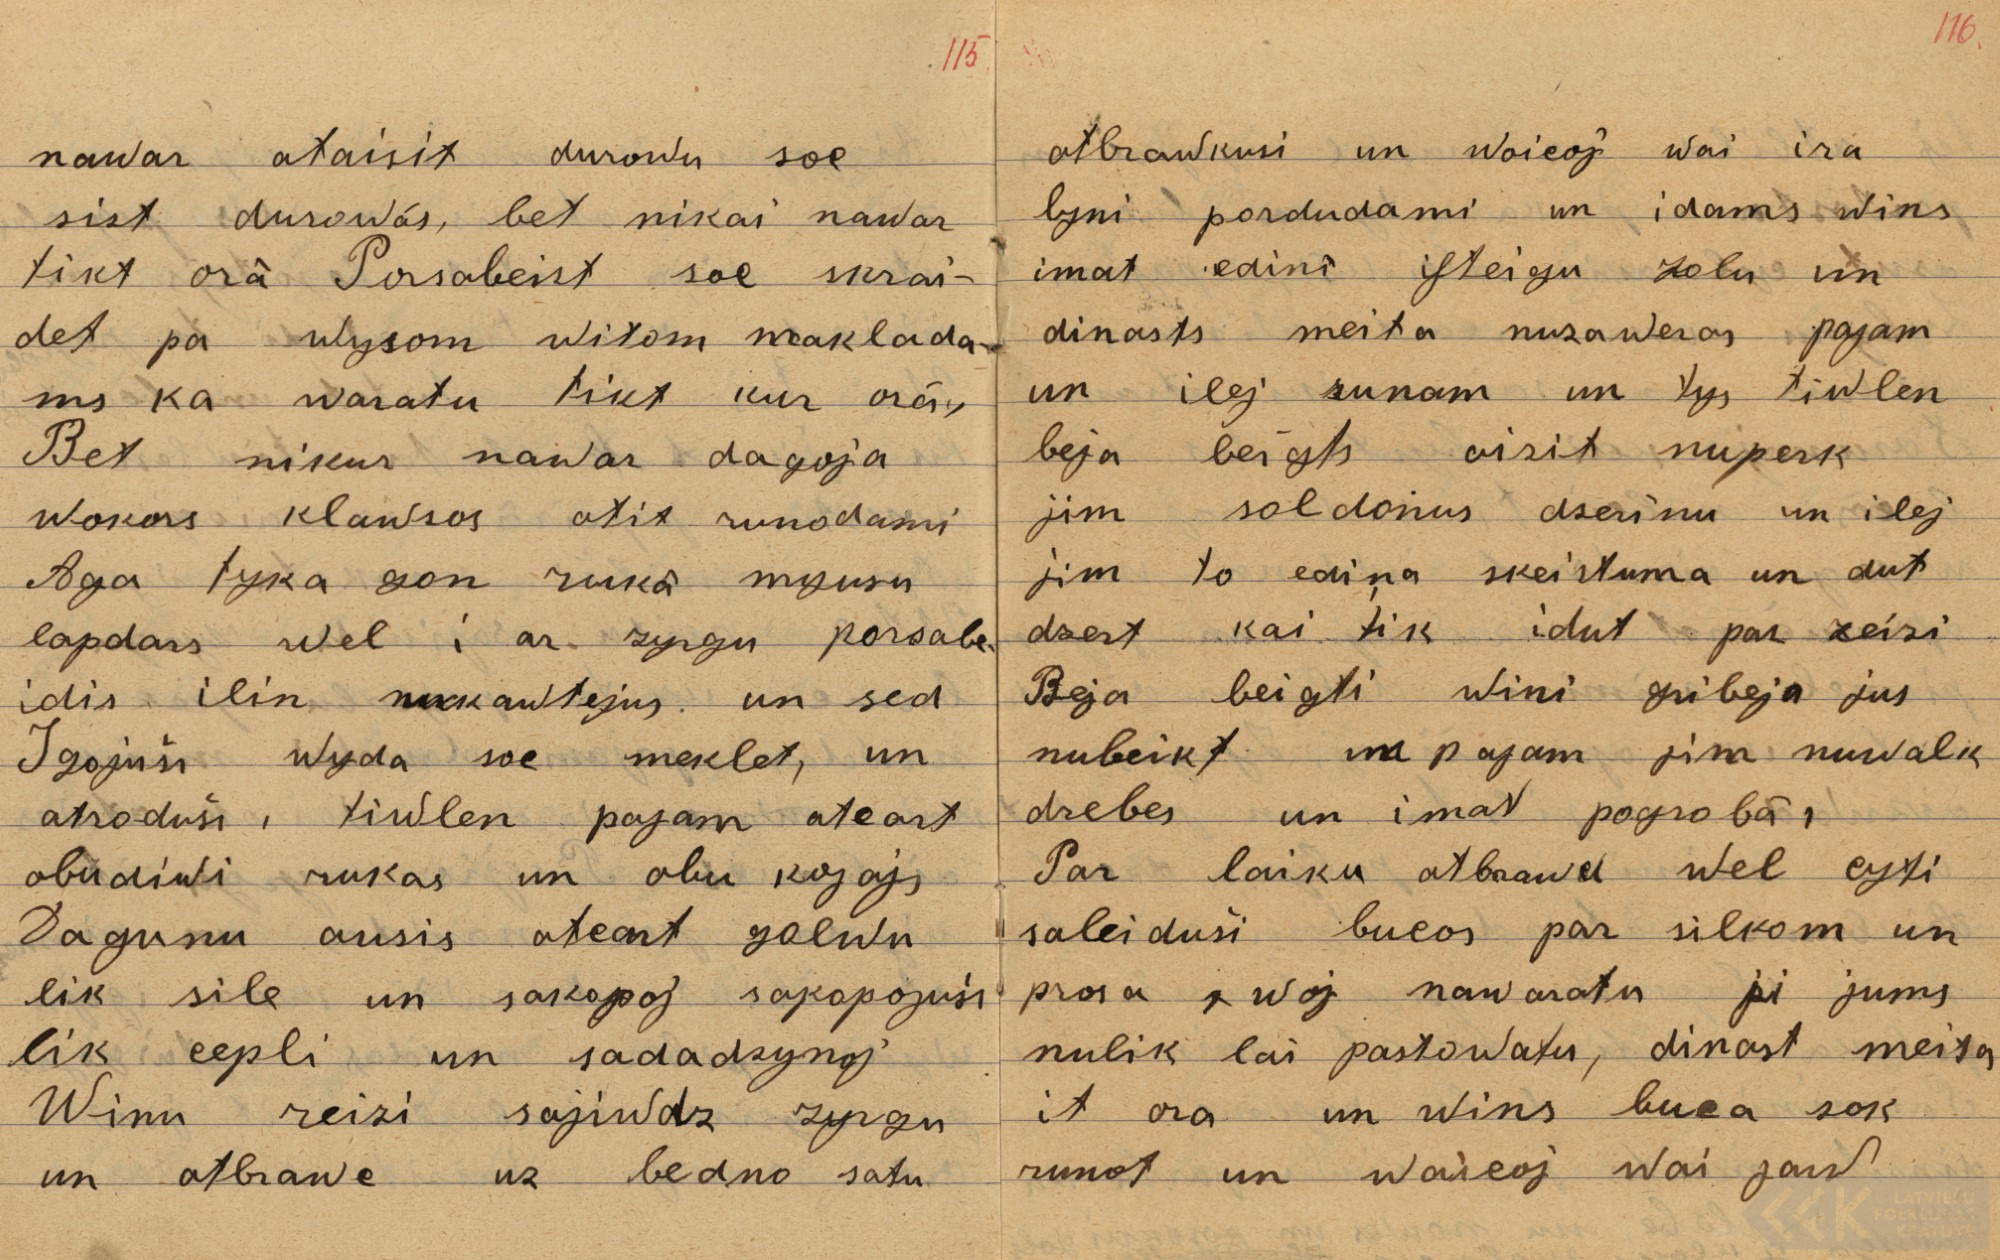 115
nawar ataisit durowu soc
sist durowás, bet nikai nawar
tikt orâ Porsabeist soc skrai-
det pa wysom witom maklada-
ms ka waratu tikt kur orâ,
Bet nikur nawar dagoja
wokors klawsos atit runodami
Aga tyka gon rukâ myusu
lapdars wel i ar zyrgu porsabe-
idis ilin nukawtejus un sed
Igojuši wyda soc meklet, un
atroduši, tiwlen pajam atcart
obudiwi rukas un obu kojojs
Dagunu ausis atcart golwu
lik sile un sakopoj sakopojuši
lik cepli un sadadzynoj
Winu reizi sajiwdz zyrgu
un atbrawc uz bedno satu
116.
atbrawkusi un woicoj wai ira
lyni pordudami un idams wins
imat edinî isteigu zolu un
dinasts meita nuzaweras pajam
un ilej zunam un tys tiwlen
beja beigts aizit nuperk
jim soldonus dzerinu un ilej
jim to ediņa skeistuma un dut
dzert kai tik idut par reizi
Beja beigti wini gribeja jus
nubeikt un pajam jim nuwalk
drebes un imat pogrobâ,
Par laiku atbrawc wel cyti
saleiduši bucos par silkom un
prosa, woj nawaratu pi jums
nulik lai pastowatu, dinast meita
it ora un wins buca sok
runot un waicoj wai jaw